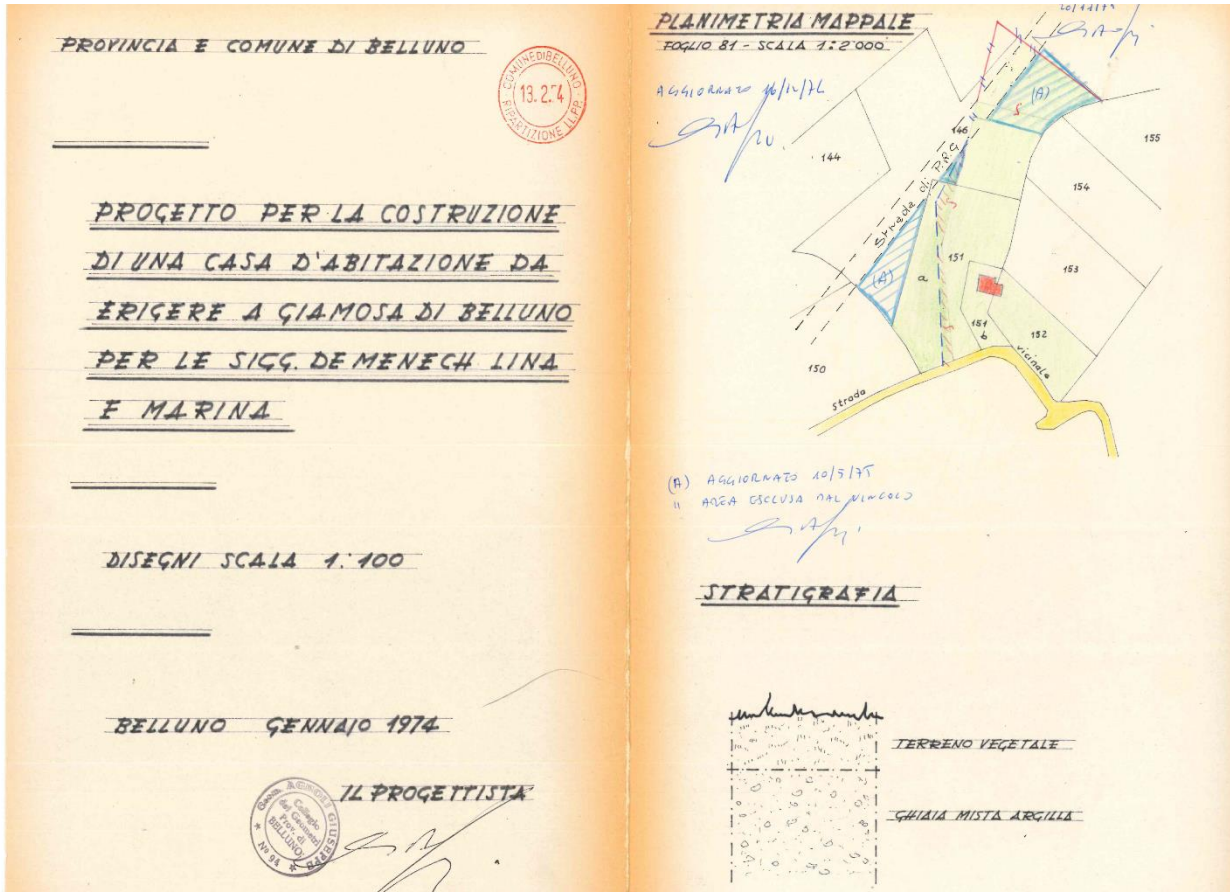 PROVINCIA E COMUNE DI BELLUNO
COMUNE DI BELLUNO
13. 2. 74
RIPARTIZIONE LL.PP.
PROGETTO PER LA COSTRUZIONE
DI UNA CASA D'ABITAZIONE DA
ERIGERE A GIAMOSA DI BELLUNO
PER LE SIGG. DE MENECH LINA
E MARINA
DISEGNI SCALA 1:100
BELLUNO GENNAIO 1974
IL PROGETTISTA
Geom. AGNOLI GIUSEPPE
Collegio
dei Geometri
Prov. di
BELLUNO
N° 94
PLANIMETRIA MAPPALE
FOGLIO 81 - SCALA 1:2000
AGGIORNATO
(A)
146
155
144
154
Strada di P.R.G
151
153
(A)
a
151
b
152
150
strada
vicinale
(A) AGGIORNATO 10/5/75
" AREA ESCLUSA DAL VINCOLO
STRATIGRAFIA
TERRENO VEGETALE
GHIAIA MISTA ARGILLA